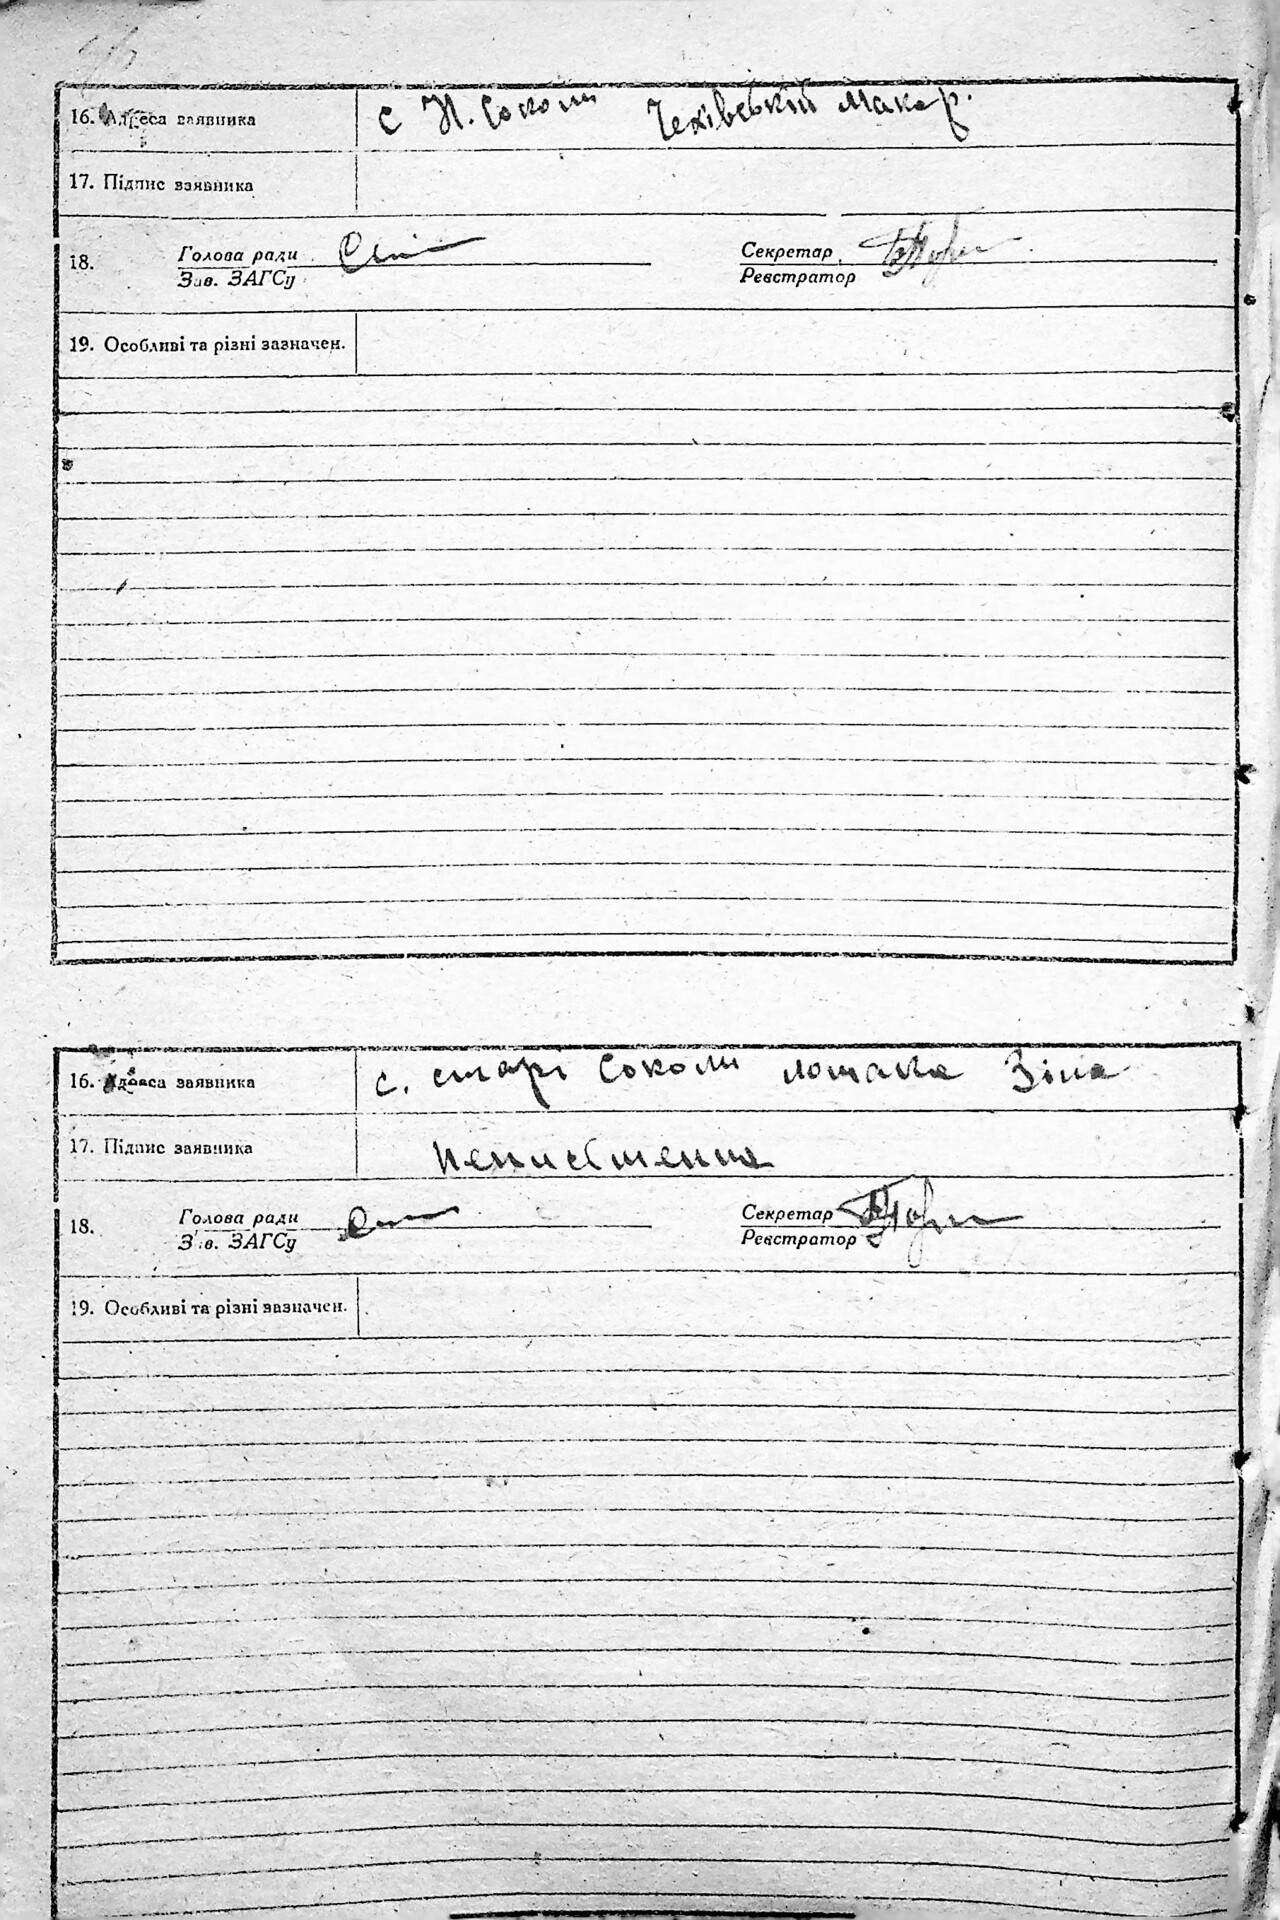 16. Адреса заявника с Н. Соколи Чехівський Макар.
17. Підпис заявника
18. Голова ради Секретар
Зав. ЗАГСу Реєстратор
19. Особливі та різні зазначен.
16. Адреса заявника с. старі Соколи Зіна
17. Підпис заявника неписьменна
18. Голова ради Секретар
Зав. ЗАГСу Реєстратор
19. Особливі та різні зазначен.